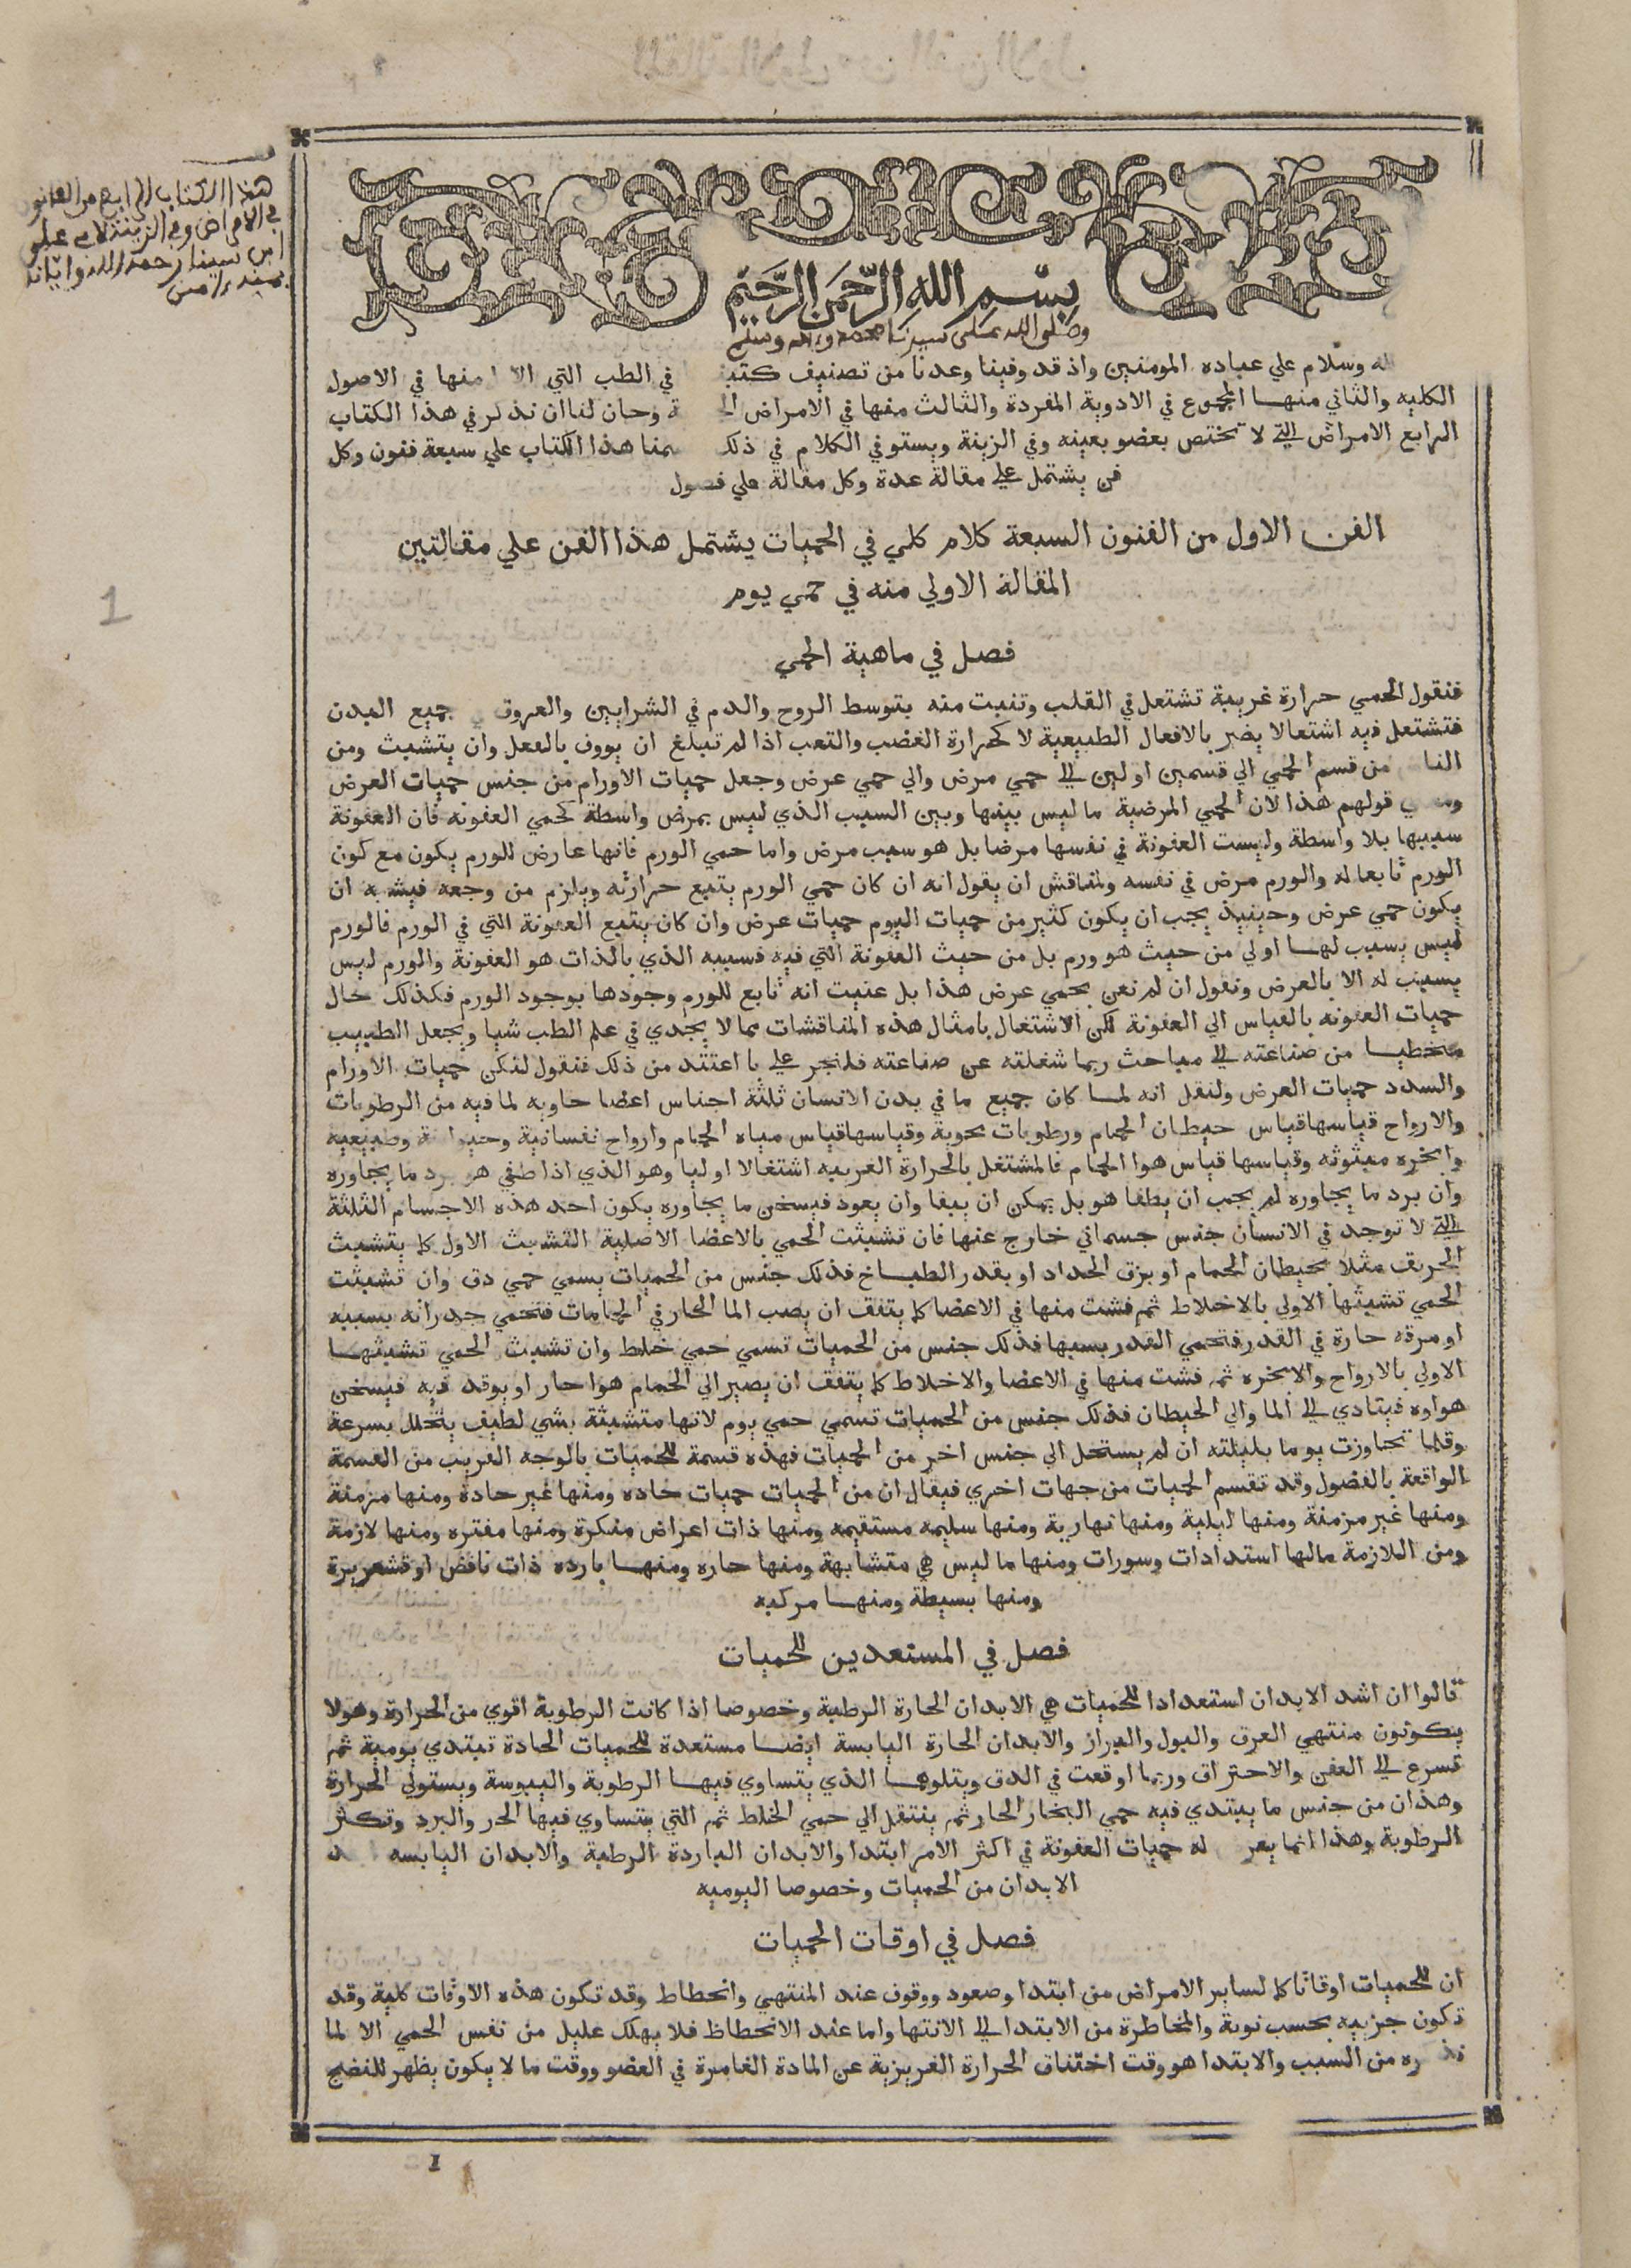 هذا الكتاب الرابع من القانون
في الامراض وفي الزينة لابي علي
ابن سينا رحمه الله واثابه
بمنه امين
بسم الله الرحمن الرحيم
وصلى الله على سيدنا محمد واله وسلم
وسلام علي عباده المومنين واذ قد وفينا وعدنا من تصنيف في الطب التي منها في الاصول
الكليه والثاني منها المجموع في الادوية المفردة والثالث منها في الامراض وحان لنا ان نذكر في هذا الكتاب
الرابع الامراض التي لا تختص بعضو بعينه وفي الزينة ويستوفي الكلام في ذلك هذا الكتاب علي سبعة فنون وكل
فن يشتمل علي مقالة عدة وكل مقالة علي فصول
الفن الاول من الفنون السبعة كلام كلي في الحميات يشتمل هذا الفن علي مقالتين
المقالة الاولي منه في حمي يوم
فصل في ماهية الحمي
فنقول الحمي حرارة غريبة تشتعل في القلب وتنبت منه بتوسط الروح والدم في الشرايين والعروق جميع البدن
فتشتعل فيه اشتعالا يضر بالافعال الطبيعية لا كحرارة الغضب والتعب اذا لم تبلغ ان يووف بالفعل وان يتشبث ومن
من قسم الحمي الي قسمين اولين الي حمي مرض والي حمي عرض وجعل حميات الاورام من جنس حميات العرض
قولهم هذا لان الحمي المرضية ما ليس بينها وبين السبب الذي ليس بمرض واسطة كحمي العفونه فان العفونة
سببها بلا واسطة وليست العفونة في نفسها مرضا بل هو سبب مرض واما حمي الورم فانها عارض للورم يكون مع كون
الورم تابعا له والورم مرض في نفسه ولمناقش ان يقول انه ان كان حمي الورم يتبع حرارته ويلزم من وجعه فيشبه ان
يكون حمي عرض وحينيذ يجب ان يكون كثير من حميات اليوم حميات عرض وان كان يتبع العفونة التي في الورم فالورم
ليس بسبب لها اولي من حيث هو ورم بل من حيث العفونة التي فيه فسببه الذي بالذات هو العفونة والورم ليس
بسبب له الا بالعرض ونقول ان لم نعن بحمي عرض هذا بل عنيت انه تابع للورم وجودها بوجود الورم فكذلك حال
حميات العفونه بالقياس الي العفونة لكن الاشتغال بامثال هذه المناقشات مما لا يجدي في علم الطب شيا ويجعل الطبيب
متخطيا من صناعته الي مباحث ربما شغلته عن صناعته فلنجر علي ما اعتيد من ذلك فنقول لتكن حميات الاورام
والسدد حميات العرض ولنقل انه لما كان جميع ما في بدن الانسان ثلثة اجناس اعضا حاويه لما فيه من الرطوبات
والارواح قياسها قياس حيطان الحمام ورطوبات محوية وقياسها قياس مياه الحمام وارواح نفسانية وطبيعيه
وابخره مبثوثه وقياسها قياس هوا الحمام فالمشتغل بالحرارة الغريبه اشتغالا اوليا وهو الذي اذا طفي برد ما يجاوره
وان برد ما يجاوره لم يجب ان يطفا هو بل يمكن ان يبقا وان يعود فيسخن ما يجاوره يكون احد هذه الاجسام الثلثة
التي لا توجد في الانسان جنس جسماني خارج عنها فان تشبثت الحمي بالاعضا الاصلية التشبث الاول كما يتشبث
الحريق مثلا بحيطان الحمام او بزق الحداد او بقدر الطباخ فذلك جنس من الحميات يسمي حمي دق وان تشبثت
الحمي تشبثها الاولي بالاخلاط ثم فشت منها في الاعضا كما يتفق ان يصب الما الحار في الحمامات فتحمي جدرانه بسببه
او مرقه حارة في القدر فتحمي القدر بسببها فذلك جنس من الحميات تسمي حمي خلط وان تشبث الحمي تشبثها
الاولي بالارواح والابخره ثم فشت منها في الاعضا والاخلاط كما يتفق ان يصير الي الحمام هوا حار او يوقد فيه فيسخن
هواوه فيتادي الي الما والي الحيطان فذلك جنس من الحميات تسمي حمي يوم لانها متشبثة بشي لطيف يتحلل بسرعة
وقلما تجاوزت يوما بليلته ان لم يستحل الي جنس اخر من الحميات فهذه قسمة للحميات بالوجه القريب من القسمة
الواقعة بالفصول وقد تقسم الحميات من جهات اخري فيقال ان من الحميات حميات حاده ومنها غير حادة ومنها مزمنة
ومنها غير مزمنة ومنها ليلية ومنها نهارية ومنها سليمه مستقيمه ومنها ذات اعراض منكرة ومنها مفتره ومنها لازمة
ومن اللازمة مالها استدادات وسورات ومنها ما ليس هي متشابهة ومنها حاره ومنها بارده ذات نافض او قشعريرة
ومنها بسيطة ومنها مركبه
فصل في المستعدين للحميات
قالوا ان اشد الابدان استعدادا للحميات هي الابدان الحارة الرطبة وخصوصا اذا كانت الرطوبة اقوي من الحرارة وهولا
يكونون منتهي العرق والبول والبراز والابدان الحارة اليابسة ايضا مستعدة للحميات الحادة تبتدي يومية ثم
تسرع الي العفن والاحتراق وربما اوقعت في الدق ويتلوها الذي يتساوي فيها الرطوبة واليبوسة ويستولي الحرارة
وهذان من جنس ما يبتدي فيه حمي البخار الحار ثم ينتقل الي حمي الخلط ثم التي يتساوي فيها الحر والبرد وتكثر
الرطوبة وهذا انما له حميات العفونة في اكثر الامر ابتدا والابدان الباردة الرطبة والابدان اليابسه
الابدان من الحميات وخصوصا اليوميه
فصل في اوقات الحميات
ان للحميات اوقاتا كما لساير الامراض من ابتدا وصعود ووقوف عند المنتهي وانحطاط وقد تكون هذه الاوقات كلية وقد
تكون جزييه بحسب نوبة والمخاطرة من الابتدا الي الانتها واما عند الانحطاط فلا يهلك عليل من نفس الحمي الا لما
من السبب والابتدا هو وقت اختناق الحرارة الغريزية عن المادة الغامرة في العضو ووقت ما لا يكون يظهر للنضج
1
1